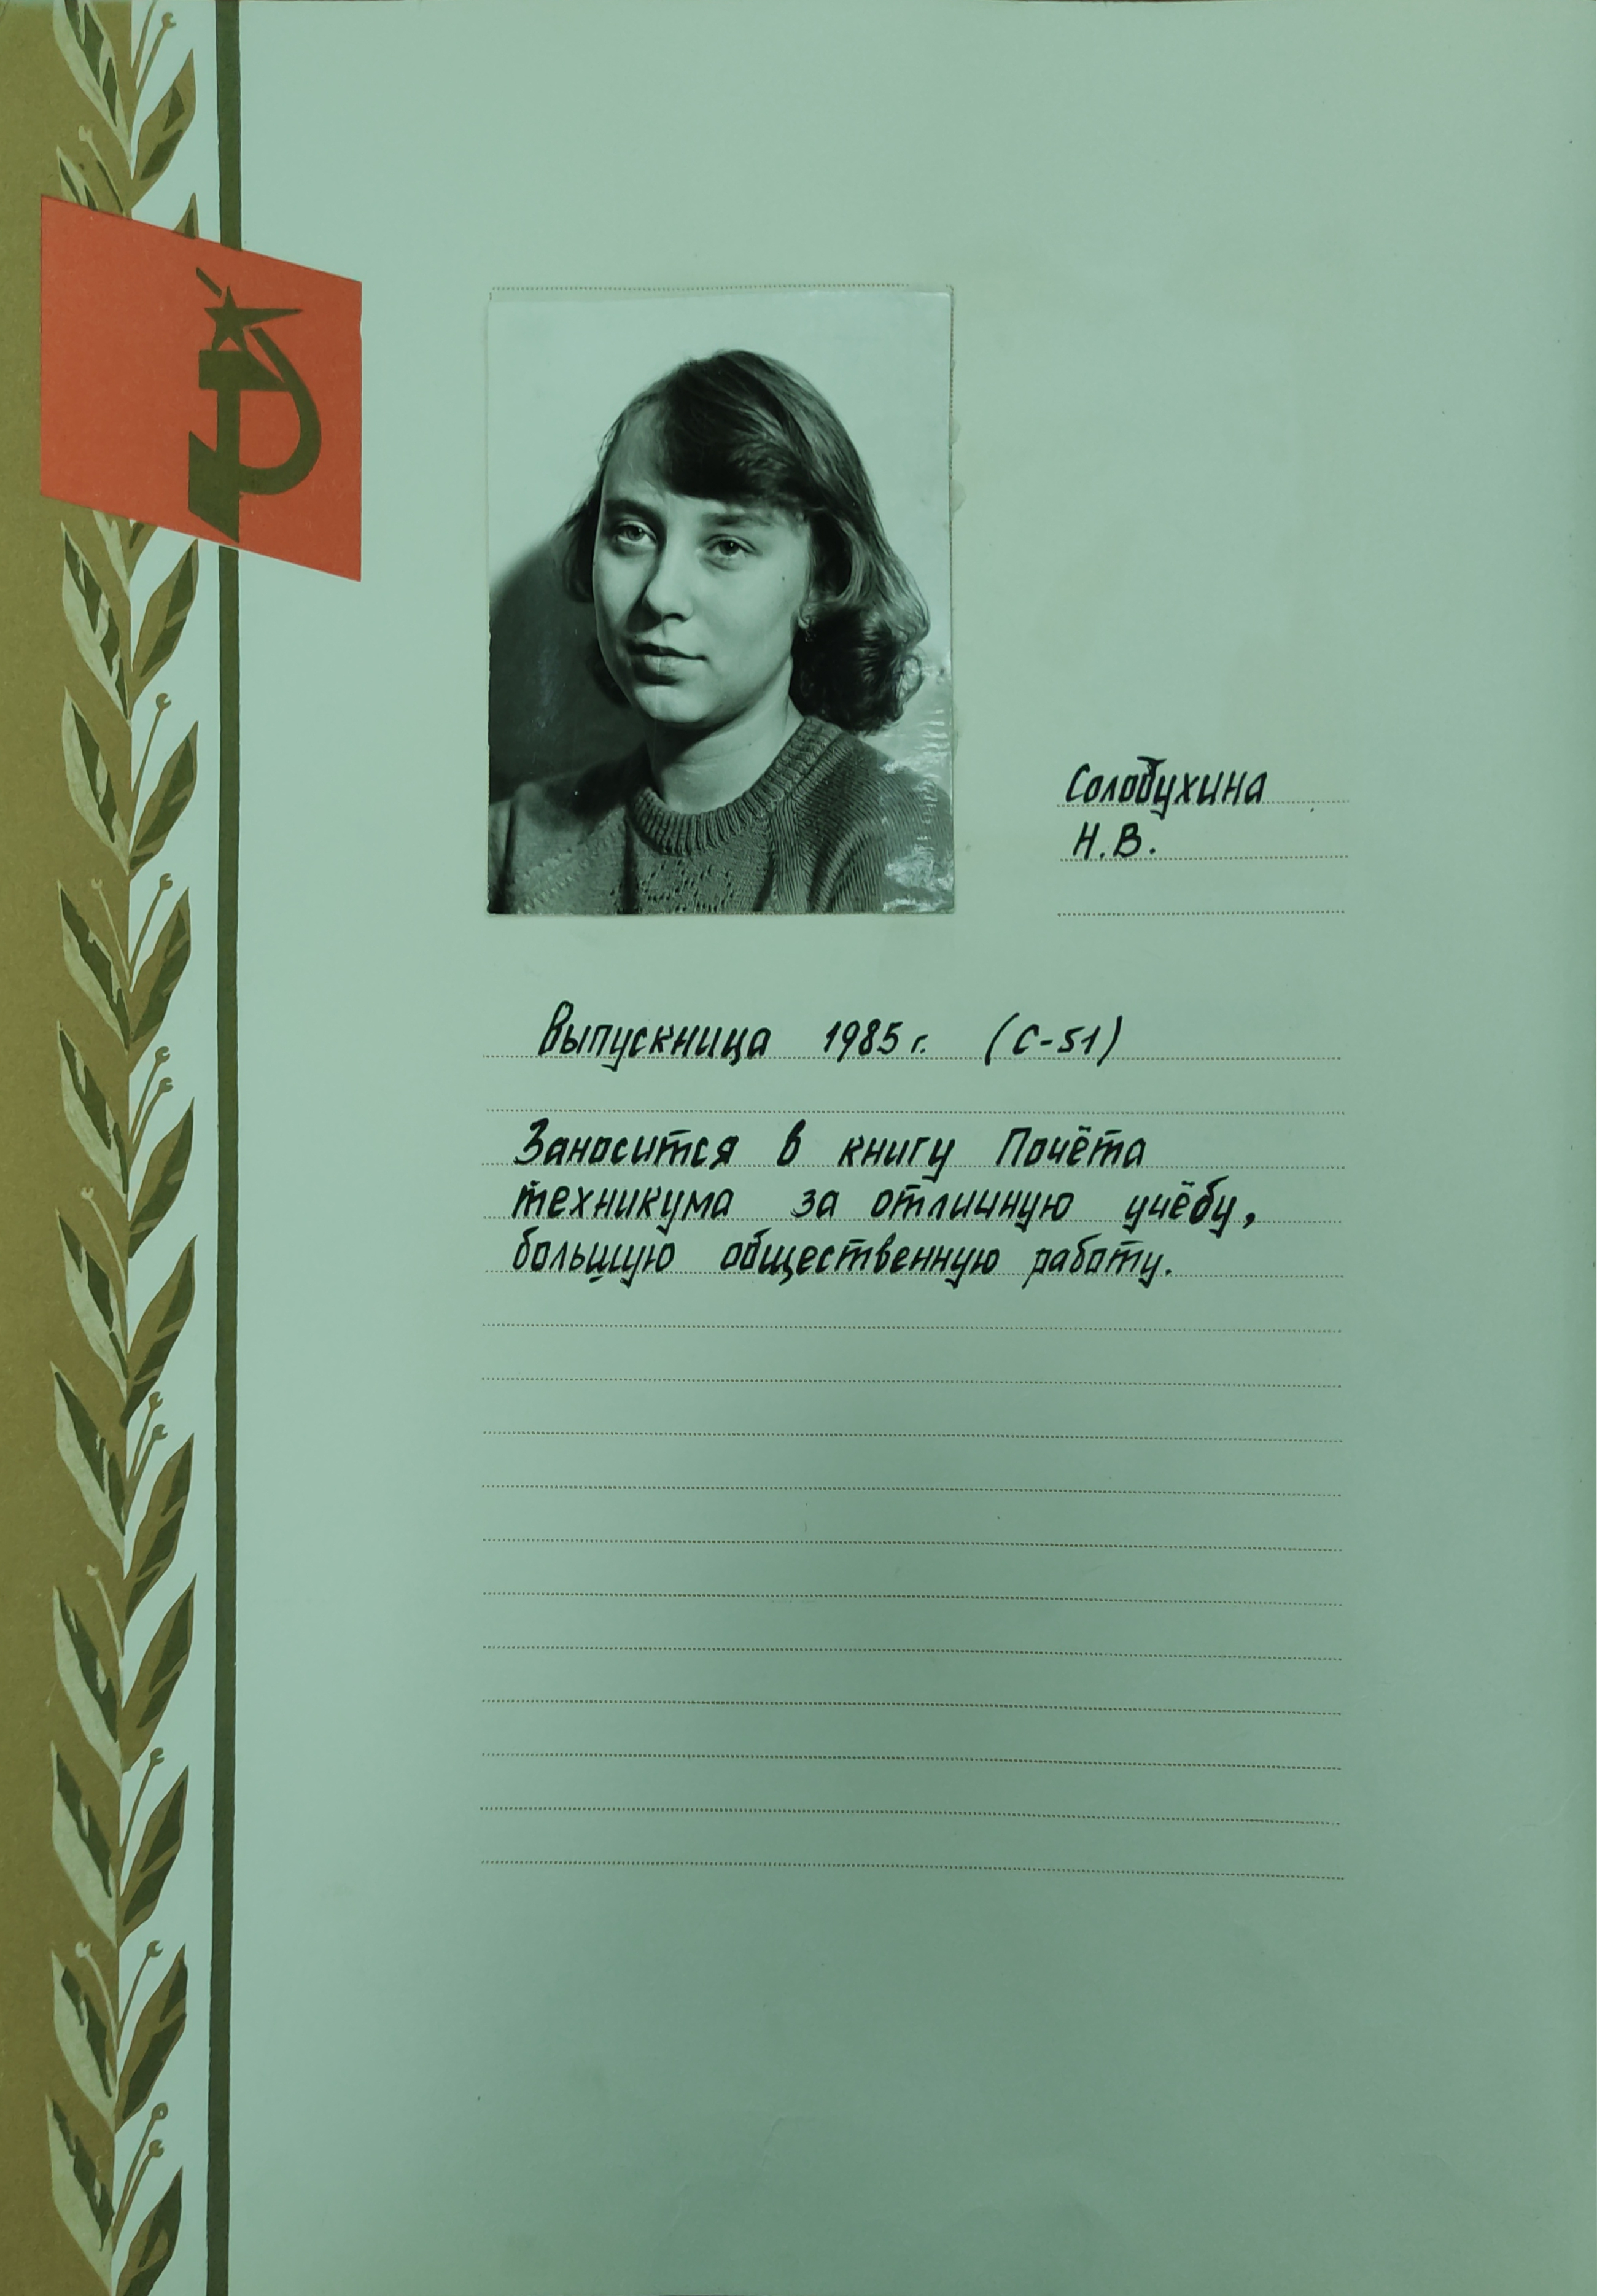 Солобухина
Н.В.
Выпускница 1985 г. (С-51)
Заносится в книгу Почёта
техникума за отличную учёбу,
большую общественную работу.